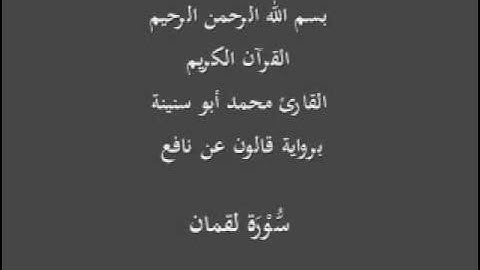 بسم الله الرحمن الرحيم
القرآن الكريم
القارئ محمد أبو سنينة
برواية قالون عن نافع
سُّوْرَة لقمان